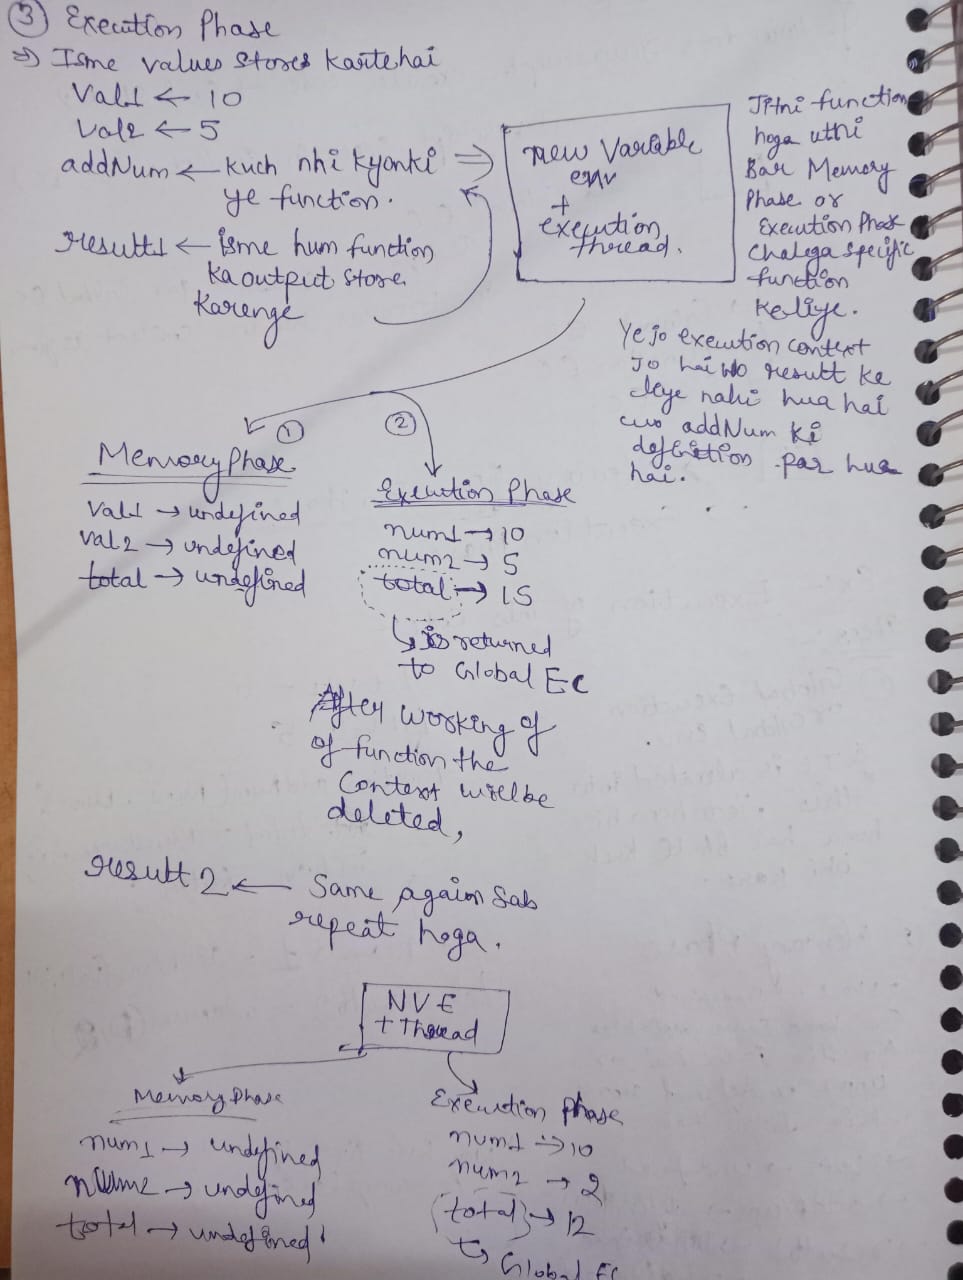 ③ Execution Phase
⇒ Isme values stores karte hai
Val1 ← 10
Val2 ← 5
addNum ← Kuch nhi kyonki
ye function.
result1 ← isme hum function
ka output store
karenge
⇒ new Variable
env
+
execution
thread.
Jitni function
hoga utni
Bar Memory
Phase or
Execution Phase
Chalega specific
function
ke liye.
Ye jo execution context
Jo hai wo result ke
leye nahi hua hai
wo addNum ki
definition par hua
hai.
① Memory Phase
Val1 → undefined
val2 → undefined
total → undefined
② Execution Phase
num1 → 10
num2 → 5
total → 15
↳ is returned
to Global EC
After working of
of function the
Context will be
deleted,
result 2 ← Same again Sab
repeat hoga.
NVE
+ Thread
Memory Phase
num1 → undefined
num2 → undefined
total → undefined
Execution phase
num1 → 10
num2 → 2
total → 12
↳ Global EC